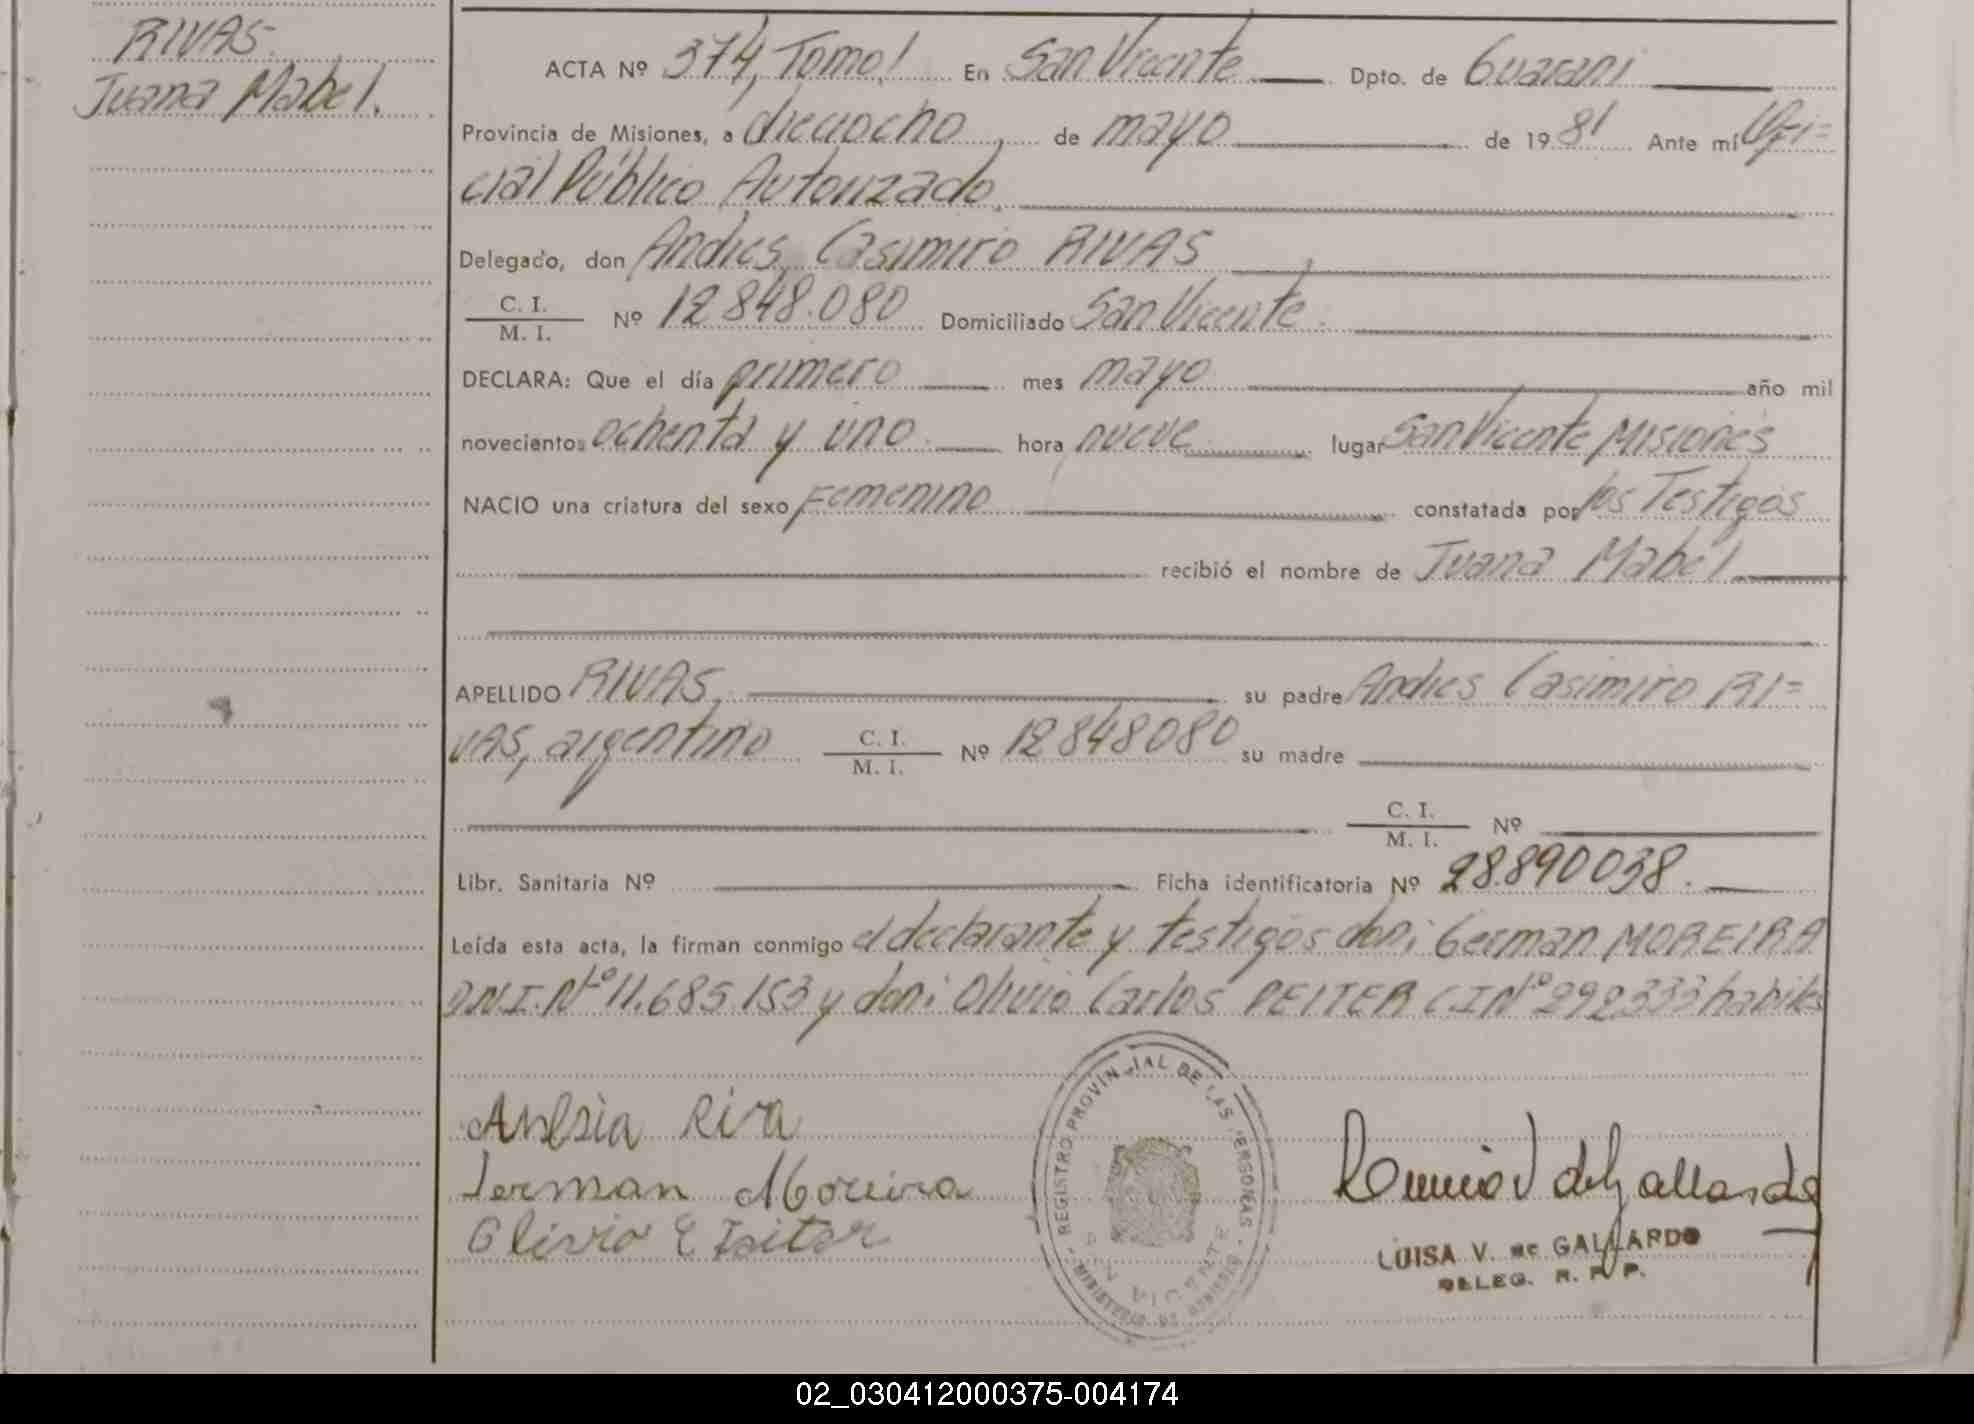 RIVAS.
Juana Mabel.
ACTA Nº 374, Tomo I En San Vicente Dpto. de Guarani
Provincia de Misiones, a dieciocho de mayo de 1981 Ante mí Ofi=
cial Público Autorizado,
Delegado, don Andrés Casimiro RIVAS
C. I.
M. I. Nº 12.848.080 Domiciliado San Vicente.
DECLARA: Que el día primero mes mayo año mil
novecientos ochenta y uno. hora nueve lugar San Vicente Misiones
NACIO una criatura del sexo Femenino constatada por los Testigos
recibió el nombre de Juana Mabel
APELLIDO RIVAS, su padre Andrés Casimiro RI=
VAS, argentino C. I. M. I. Nº 12848080 su madre
C. I. M. I. Nº
Libr. Sanitaria Nº Ficha identificatoria Nº 28.890038.
Leída esta acta, la firman conmigo el declarante y testigos don: German MOREIRA
D.N.I. Nº 11.685.153 y don: Olivio Carlos PEITER C.I Nº 292333 habiles
REGISTRO PROVINCIAL DE LAS PERSONAS
German Moreira
LUISA V. de GALLARDO
DELEG. R. P. P.
02_030412000375-004174